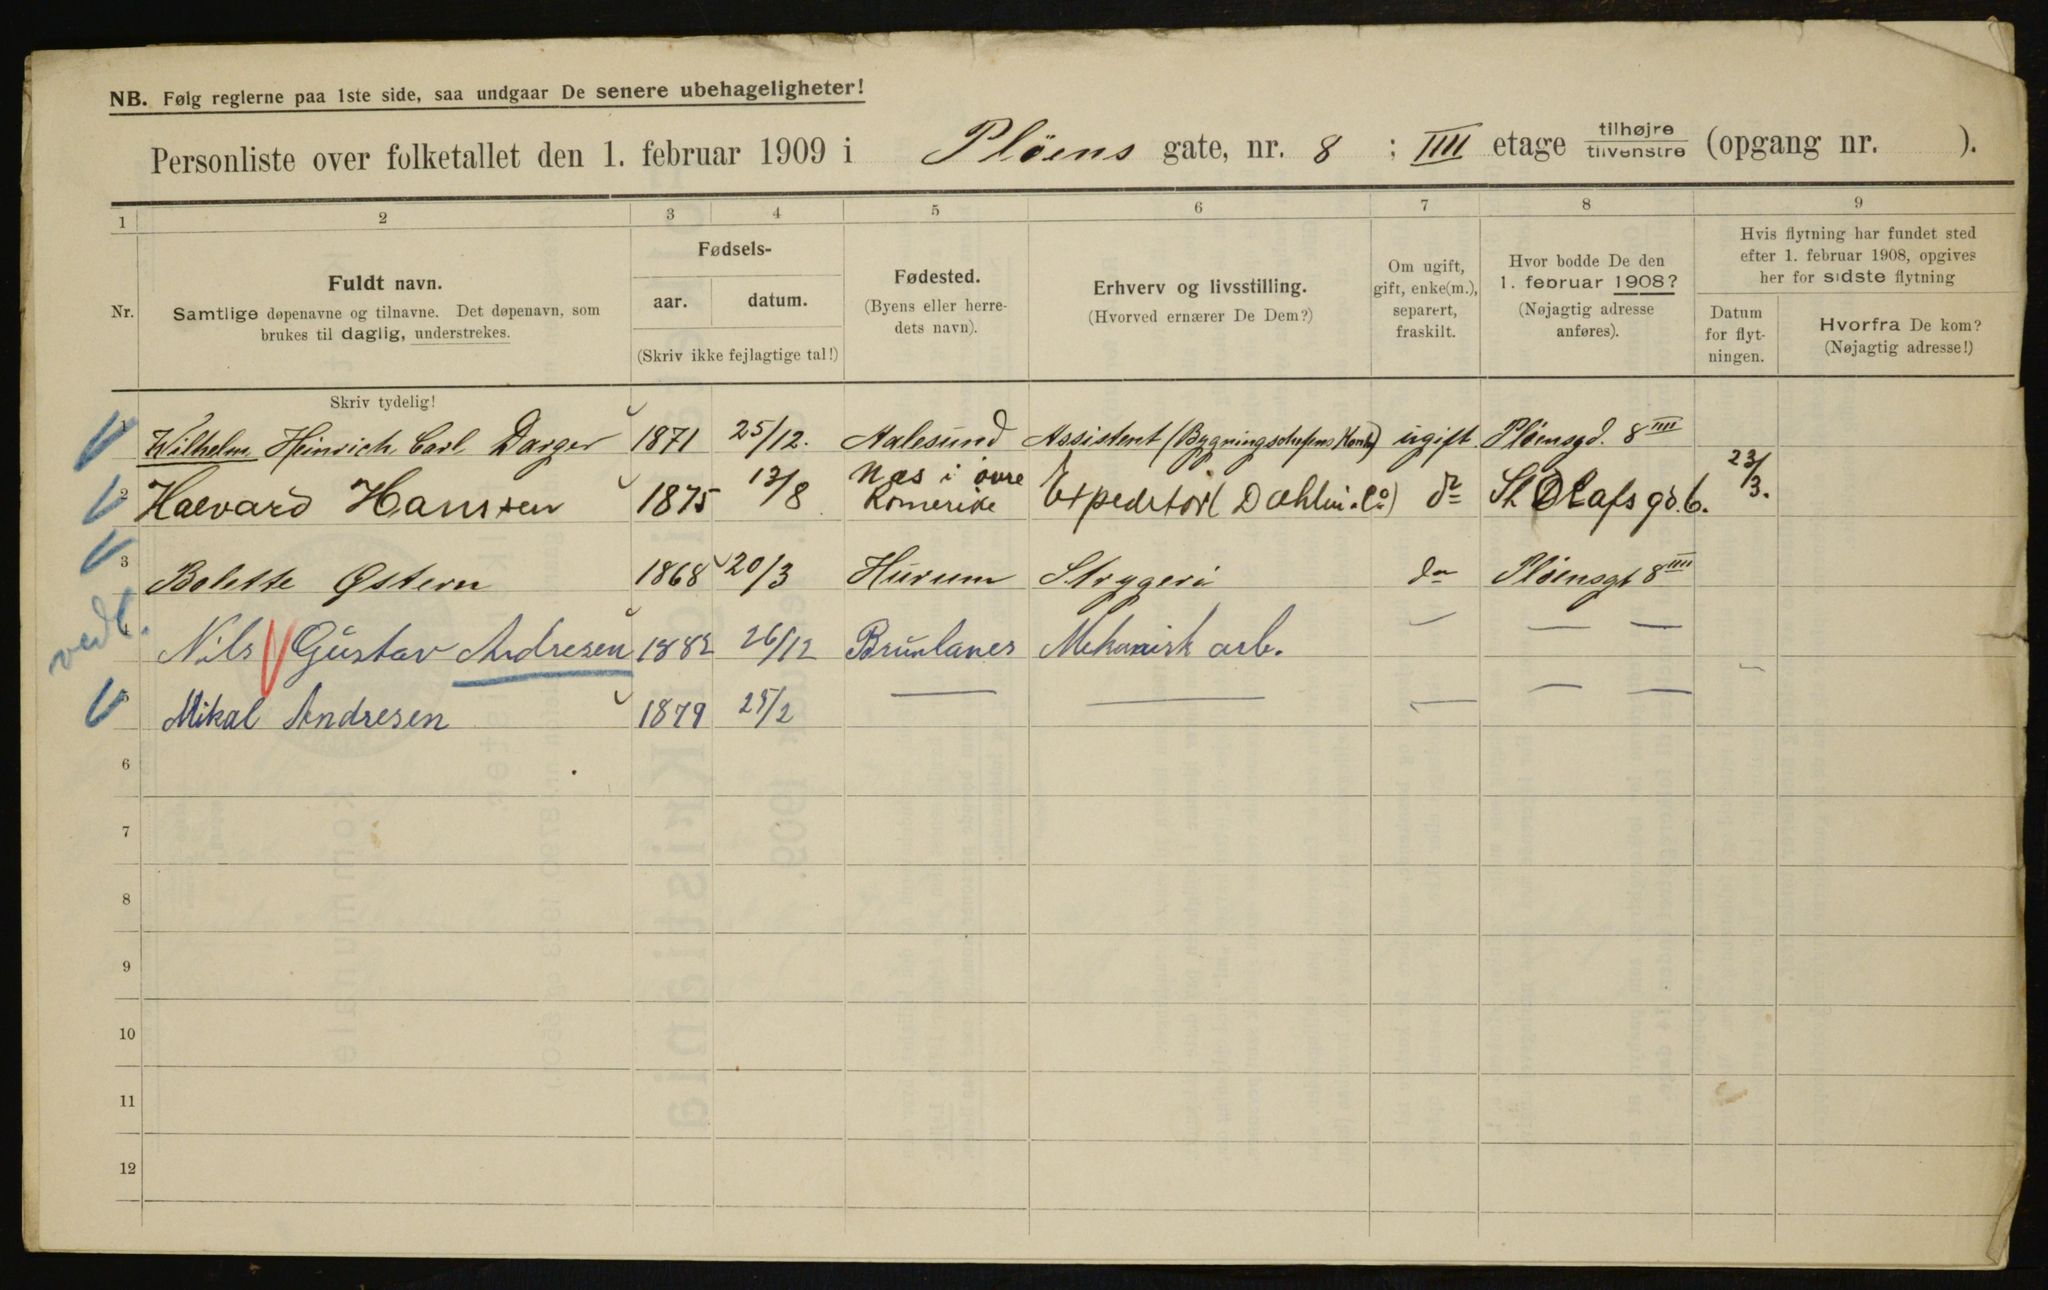 NB. Følg reglerne paa 1ste side, saa undgaar De senere ubehageligheter!
Personliste over folketallet den 1. februar 1909 i Pløens gate, nr. 8 ; IIII etage tilhøjre / tilvenstre (opgang nr. ).
1 2 3 4 5 6 7 8 9
Nr.
Fuldt navn.
Samtlige døpenavne og tilnavne. Det døpenavn, som
brukes til daglig, understrekes.
Skriv tydelig!
Fødsels-
aar. datum.
(Skriv ikke fejlagtige tal!)
Fødested.
(Byens eller herre-
dets navn).
Erhverv og livsstilling.
(Hvorved ernærer De Dem?)
Om ugift,
gift, enke(m.),
separert,
fraskilt.
Hvor bodde De den
1. februar 1908?
(Nøjagtig adresse
anføres).
Hvis flytning har fundet sted
efter 1. februar 1908, opgives
her for sidste flytning
Datum
for flyt-
ningen.
Hvorfra De kom?
(Nøjagtig adresse!)
1 Wilhelm Heinrich Carl Darger 1871 25/12. Aalesund Assistent (Bygningschefens Kont.) ugift Pløensgd. 8 IIII
2 Halvard Hanssen 1875 13/8 Næs i øvre Romerike Expeditør (Dæhlin & Co) do St Olafs gd. 6. 23/3.
3 Bolette Østern 1868 20/3 Hurum Strygeri do Pløensgt 8 IIII
vedl.
4 Nils Gustav Andresen 1882 26/12 Brunlanes Mekanisk arb. — — —
5 Mikal Andresen 1879 25/2 — — — — —
6
7
8
9
10
11
12